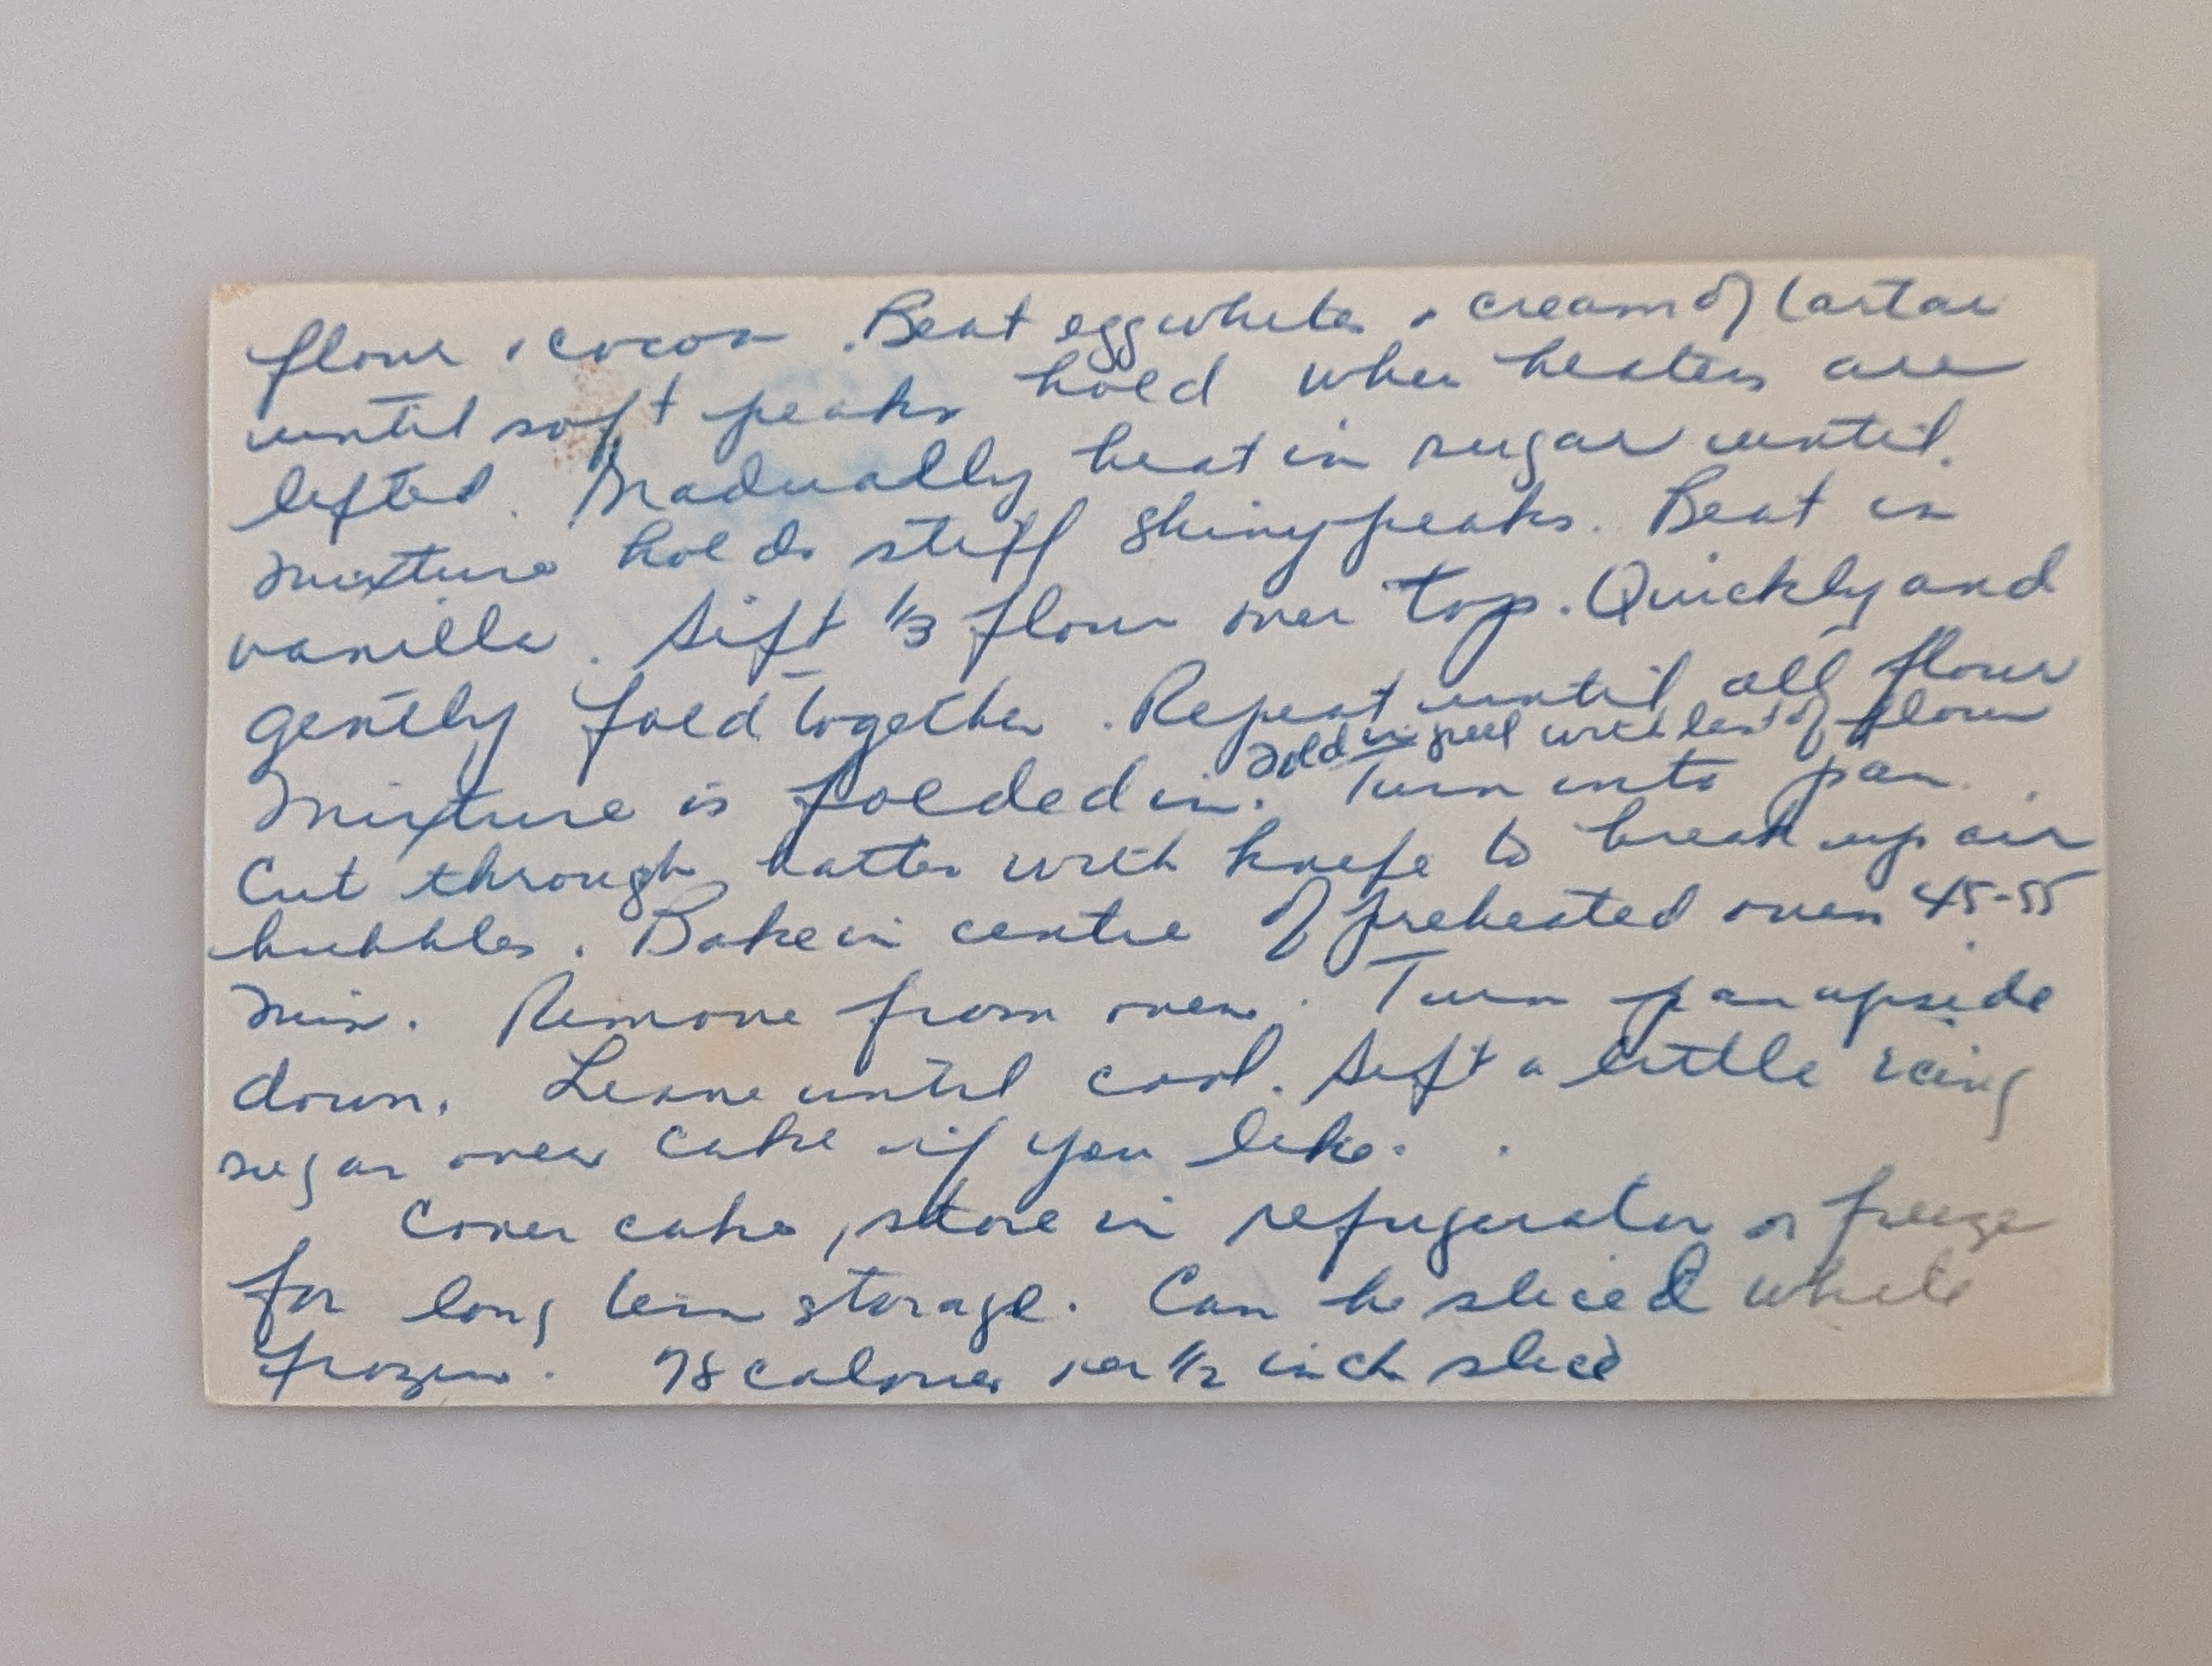 flour & cocoa. Beat egg whites & cream of tartar
until soft peaks hold when beaters are
lifted. Gradually beat in sugar until
mixture holds stiff shiny peaks. Beat in
vanilla. Sift 1/3 flour over top. Quickly and
gently fold together. Repeat until all flour
Fold in peel with last of flour
mixture is folded in. Turn into pan.
Cut through batter with knife to break up air
bubbles. Bake in centre of preheated oven 45-55
min. Remove from oven. Turn pan upside
down. Leave until cool. Sift a little icing
sugar over cake if you like.
Cover cake, store in refrigerator or freeze
for long term storage. Can be sliced while
frozen. 78 calories per 1/2 inch slice